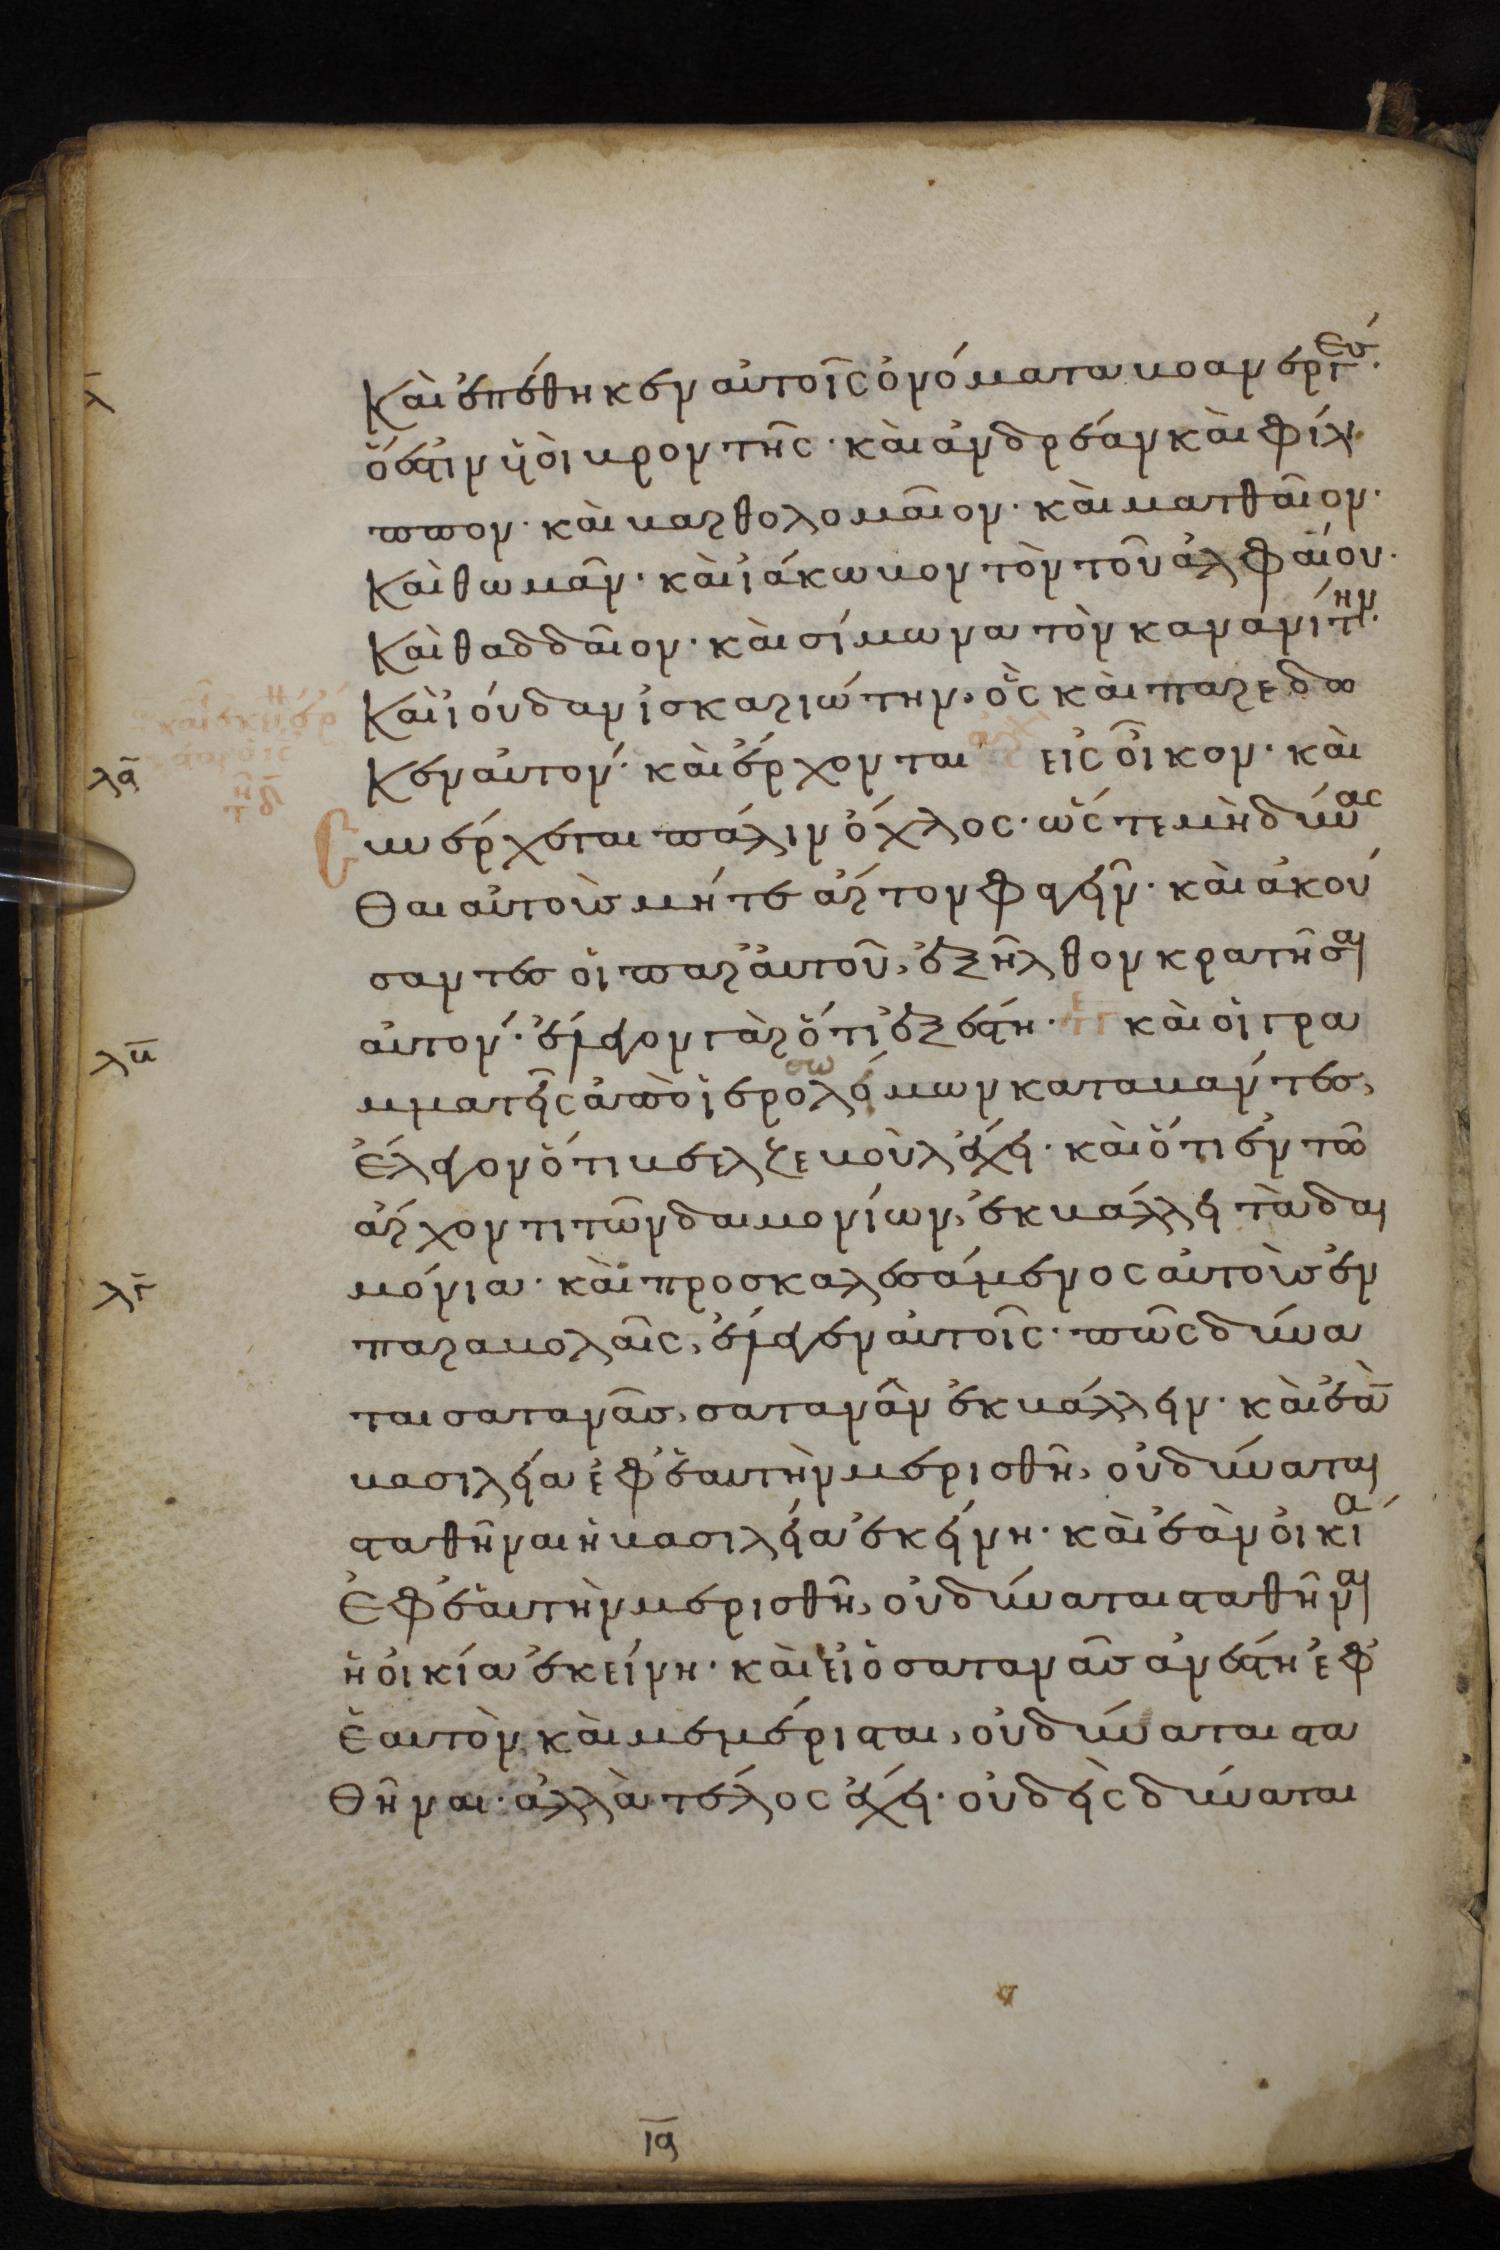 λ̄
καὶ ἐπέθηκεν αὐτοῖς ὀνόματα βοανεργές·
ὅ ἐστιν υἱοὶ βροντῆς· καὶ ἀνδρέαν καὶ φίλι
ππον· καὶ βαρθολομαῖον· καὶ ματθαῖον·
καὶ θωμᾶν· καὶ ἰάκωβον τὸν τοῦ ἀλφαίου·
καὶ θαδδαῖον· καὶ σίμωνα τὸν κανανίτην·
καὶ ἰούδαν ἰσκαριώτην, ὃς καὶ παρέδω
λᾱ
κεν αὐτόν· καὶ ἔρχονται εἰς οἶκον· καὶ
συνέρχεται πάλιν ὄχλος· ὥστε μὴ δύνας
θαι αὐτοὺς μήτε ἄρτον φαγεῖν· καὶ ἀκού
σαντες οἱ παρ' αὐτοῦ, ἐξῆλθον κρατῆσαι
λβ̄
αὐτόν· ἔλεγον γὰρ ὅτι ἐξέστη· καὶ οἱ γρα
μματεῖς ἀπὸ ἱεροσολύμων καταβάντες,
ἔλεγον ὅτι βεελζεβοὺλ ἔχει· καὶ ὅτι ἐν τῶ
ἄρχοντι τῶν δαιμονίων, ἐκβάλλει τὰ δαι
λγ̄
μόνια· καὶ προσκαλεσάμενος αὐτοὺς ἐν
παραβολαῖς, ἔλεγεν αὐτοῖς· πῶς δύνα
ται σατανᾶς, σατανᾶν ἐκβάλλειν· καὶ ἐὰ̄
βασιλεία ἐφ' ἑαυτὴν μερισθῆ, οὐ δύναται
σταθῆναι ἡ βασιλεία ἐκείνη· καὶ ἐὰν οἰκία
ἐφ' ἑαυτὴν μερισθῆ, οὐ δύναται σταθῆναι
ἡ οἰκία ἐκείνη· καὶ εἰ ὁ σατανᾶς ἀνέστη ἐφ'
ἑαυτὸν καὶ μεμέρισται, οὐ δύναται στα
θῆναι· ἀλλὰ τέλος ἔχει· οὐδεὶς δύναται
ῑϛ